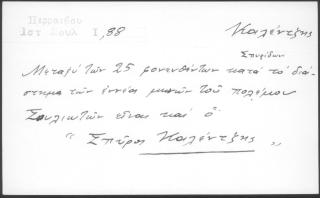 Περραιβου
Ιστ Σουλ Ι, 88
Καλέντζης
Σπυρίδων
Μεταξύ τῶν 25 φονευθέντων κατά το διά-
στημα τῶν ἐννέα μηνῶν τοῦ πολέμου
Σουλιωτῶν εἶναι καί ὁ
"Σπῦρος Καλέντζης"